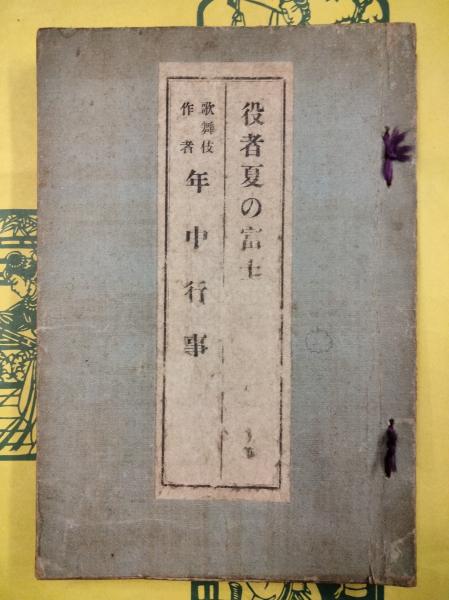 役者夏の富士
歌舞伎
作者
年中行事